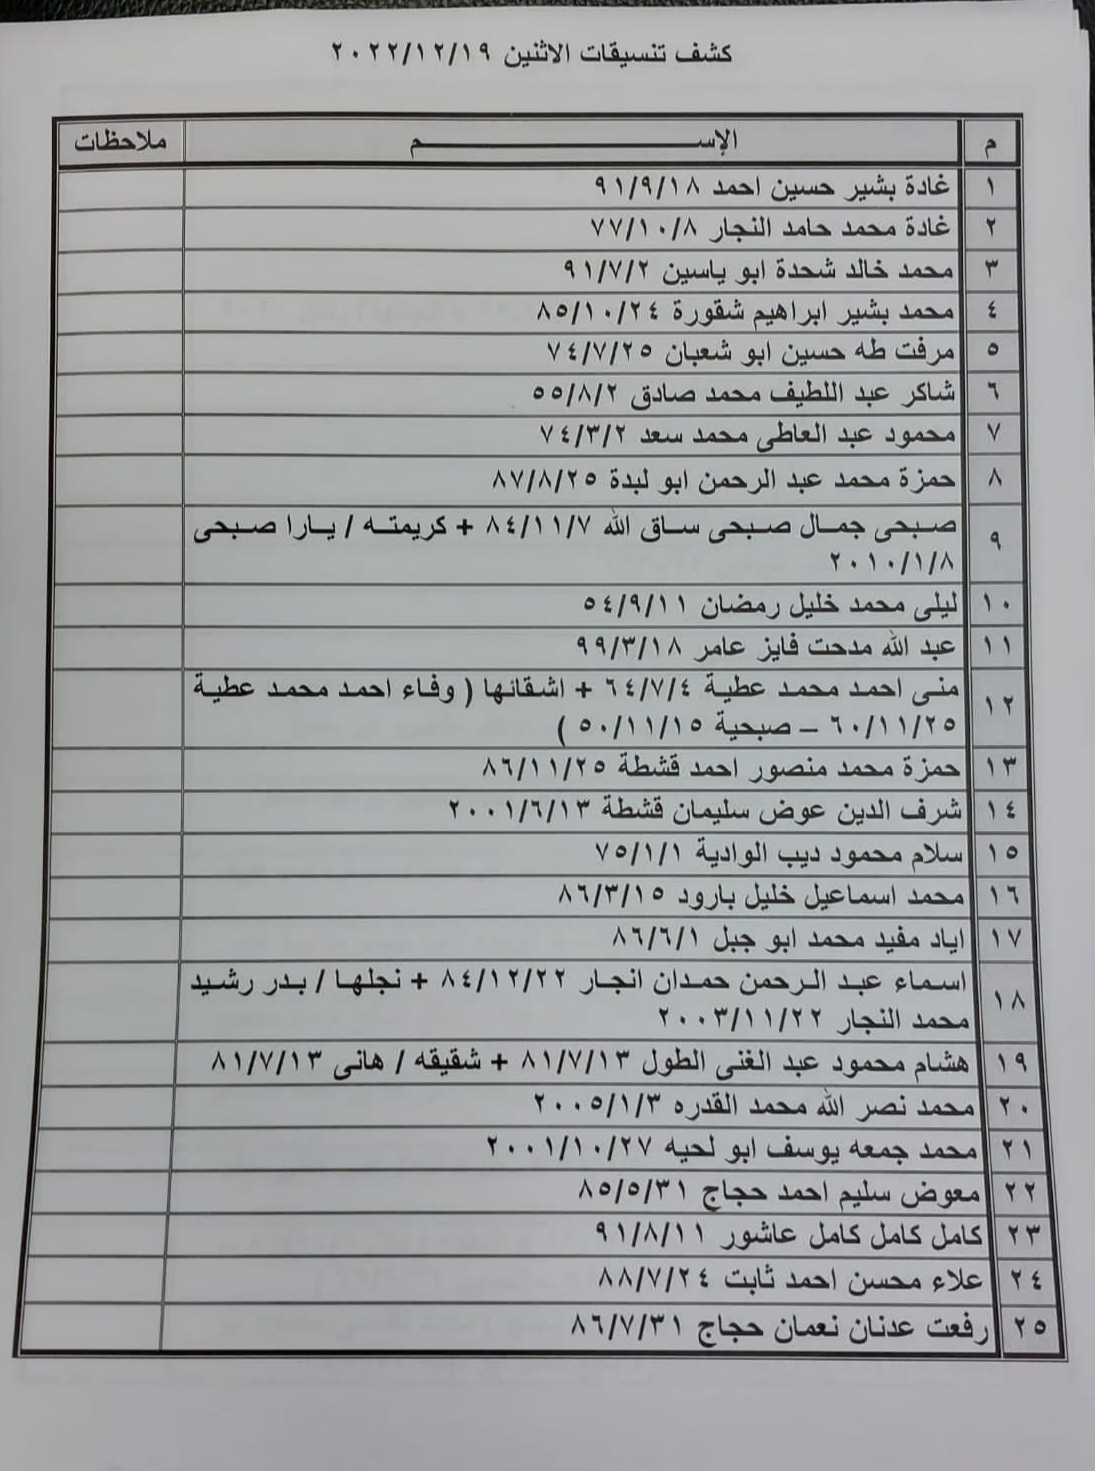 كشف تنسيقات الاثنين ٢٠٢٢/١٢/١٩
م الإســـم ملاحظات
١ غادة بشير حسين احمد ٩١/٩/١٨
٢ غادة محمد حامد النجار ٧٧/١٠/٨
٣ محمد خالد شحدة ابو ياسين ٩١/٧/٢
٤ محمد بشير ابراهيم شقورة ٨٥/١٠/٢٤
٥ مرفت طه حسين ابو شعبان ٧٤/٧/٢٥
٦ شاكر عبد اللطيف محمد صادق ٥٥/٨/٢
٧ محمود عبد العاطى محمد سعد ٧٤/٣/٢
٨ حمزة محمد عبد الرحمن ابو لبدة ٨٧/٨/٢٥
٩ صبحى جمال صبحى ساق الله ٨٤/١١/٧ + كريمته / يارا صبحى
٢٠١٠/١/٨
١٠ ليلى محمد خليل رمضان ٥٤/٩/١١
١١ عبد الله مدحت فايز عامر ٩٩/٣/١٨
١٢ منى احمد محمد عطية ٦٤/٧/٤ + اشقائها ( وفاء احمد محمد عطية
٦٠/١١/٢٥ – صبحية ٥٠/١١/١٥ )
١٣ حمزة محمد منصور احمد قشطة ٨٦/١١/٢٥
١٤ شرف الدين عوض سليمان قشطة ٢٠٠١/٦/١٣
١٥ سلام محمود ديب الوادية ٧٥/١/١
١٦ محمد اسماعيل خليل بارود ٨٦/٣/١٥
١٧ اياد مفيد محمد ابو جبل ٨٦/٦/١
١٨ اسماء عبد الرحمن حمدان انجار ٨٤/١٢/٢٢ + نجلها / بدر رشيد
محمد النجار ٢٠٠٣/١١/٢٢
١٩ هشام محمود عبد الغنى الطول ٨١/٧/١٣ + شقيقه / هانى ٨١/٧/١٣
٢٠ محمد نصر الله محمد القدره ٢٠٠٥/١/٣
٢١ محمد جمعه يوسف ابو لحيه ٢٠٠١/١٠/٢٧
٢٢ معوض سليم احمد حجاج ٨٥/٥/٣١
٢٣ كامل كامل كامل عاشور ٩١/٨/١١
٢٤ علاء محسن احمد ثابت ٨٨/٧/٢٤
٢٥ رفعت عدنان نعمان حجاج ٨٦/٧/٣١